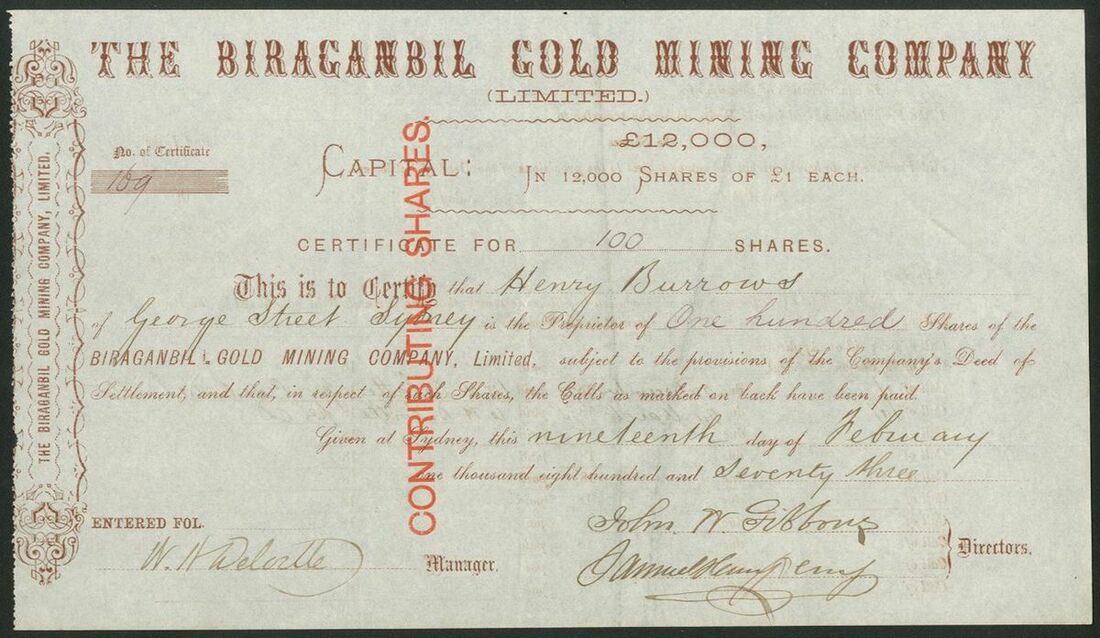 THE BIRAGANBIL GOLD MINING COMPANY
(LIMITED.)
£12,000,
No. of Certificate
109
CAPITAL:
IN 12,000 SHARES OF £1 EACH.
CONTRIBUTING SHARES.
THE BIRAGANBIL GOLD MINING COMPANY, LIMITED.
CERTIFICATE FOR 100 SHARES.
This is to Certify that Henry Burrows
of George Street Sydney is the Proprietor of One hundred Shares of the
BIRAGANBIL GOLD MINING COMPANY, Limited, subject to the provisions of the Company's Deed of
Settlement, and that, in respect of such Shares, the Calls as marked on back have been paid.
Given at Sydney, this nineteenth day of February
One thousand eight hundred and Seventy three
ENTERED FOL.
John W Gibbons
W. H
Manager.
Samuel
Directors.